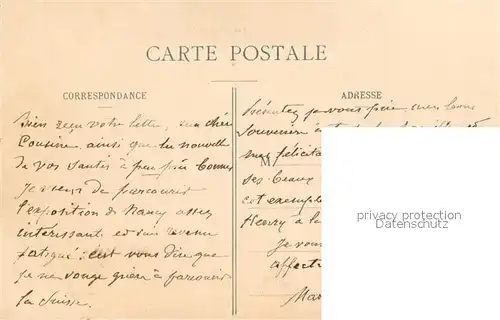 CARTE POSTALE
CORRESPONDANCE
Bien reçu votre lettre, ma chère
Cousine, ainsi que les nouvelles
de vos santés à peu près bonnes
Je viens de parcourir
l'exposition de Nancy assez
intéressante et suis
fatigué: c'est vous dire que
je ne songe guère à parcourir
la Suisse.
ADRESSE
Présentez je vous prie mes bons
Souvenirs à
M
mes félicita
ses beaux
est exempl
Henry a la
Je vous
affecti
Mar
privacy protection
Datenschutz